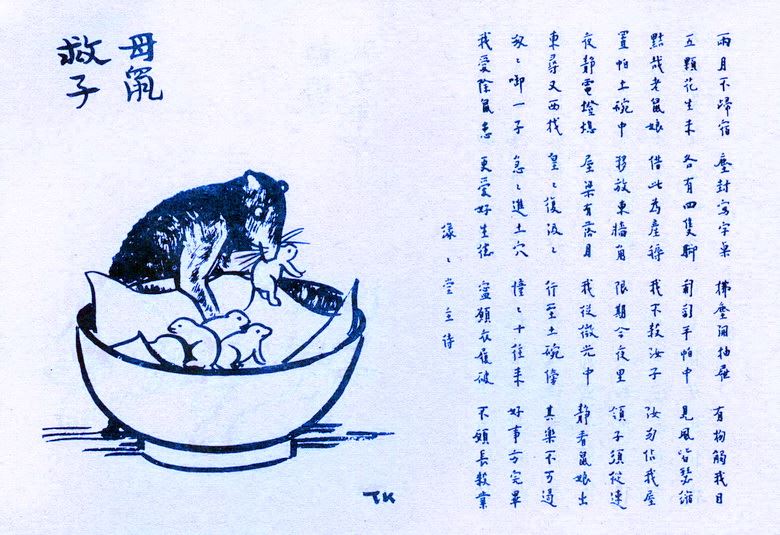 母鼠
救子
兩月不歸宿 塵封寫字桌 拂塵開抽屜 有物觸我目
五顆花生米 各有四隻腳 匍匐手帕中 見風皆瑟縮
黠哉老鼠娘 借此為產褥 我不殺汝子 汝勿佔我屋
置帕土碗中 移放東牆角 限期今夜里 領子須從速
夜靜電燈熄 屋梁有落月 我從微光中 靜看鼠娘出
東尋又西找 皇々復汲々 行至土碗傍 其樂不可遏
孜々啣一子 急々進土穴 憧々十往来 好事方完畢
我愛除鼠患 更愛好生德 寧願衣履破 不願長殺業
緣々堂主詩
TK